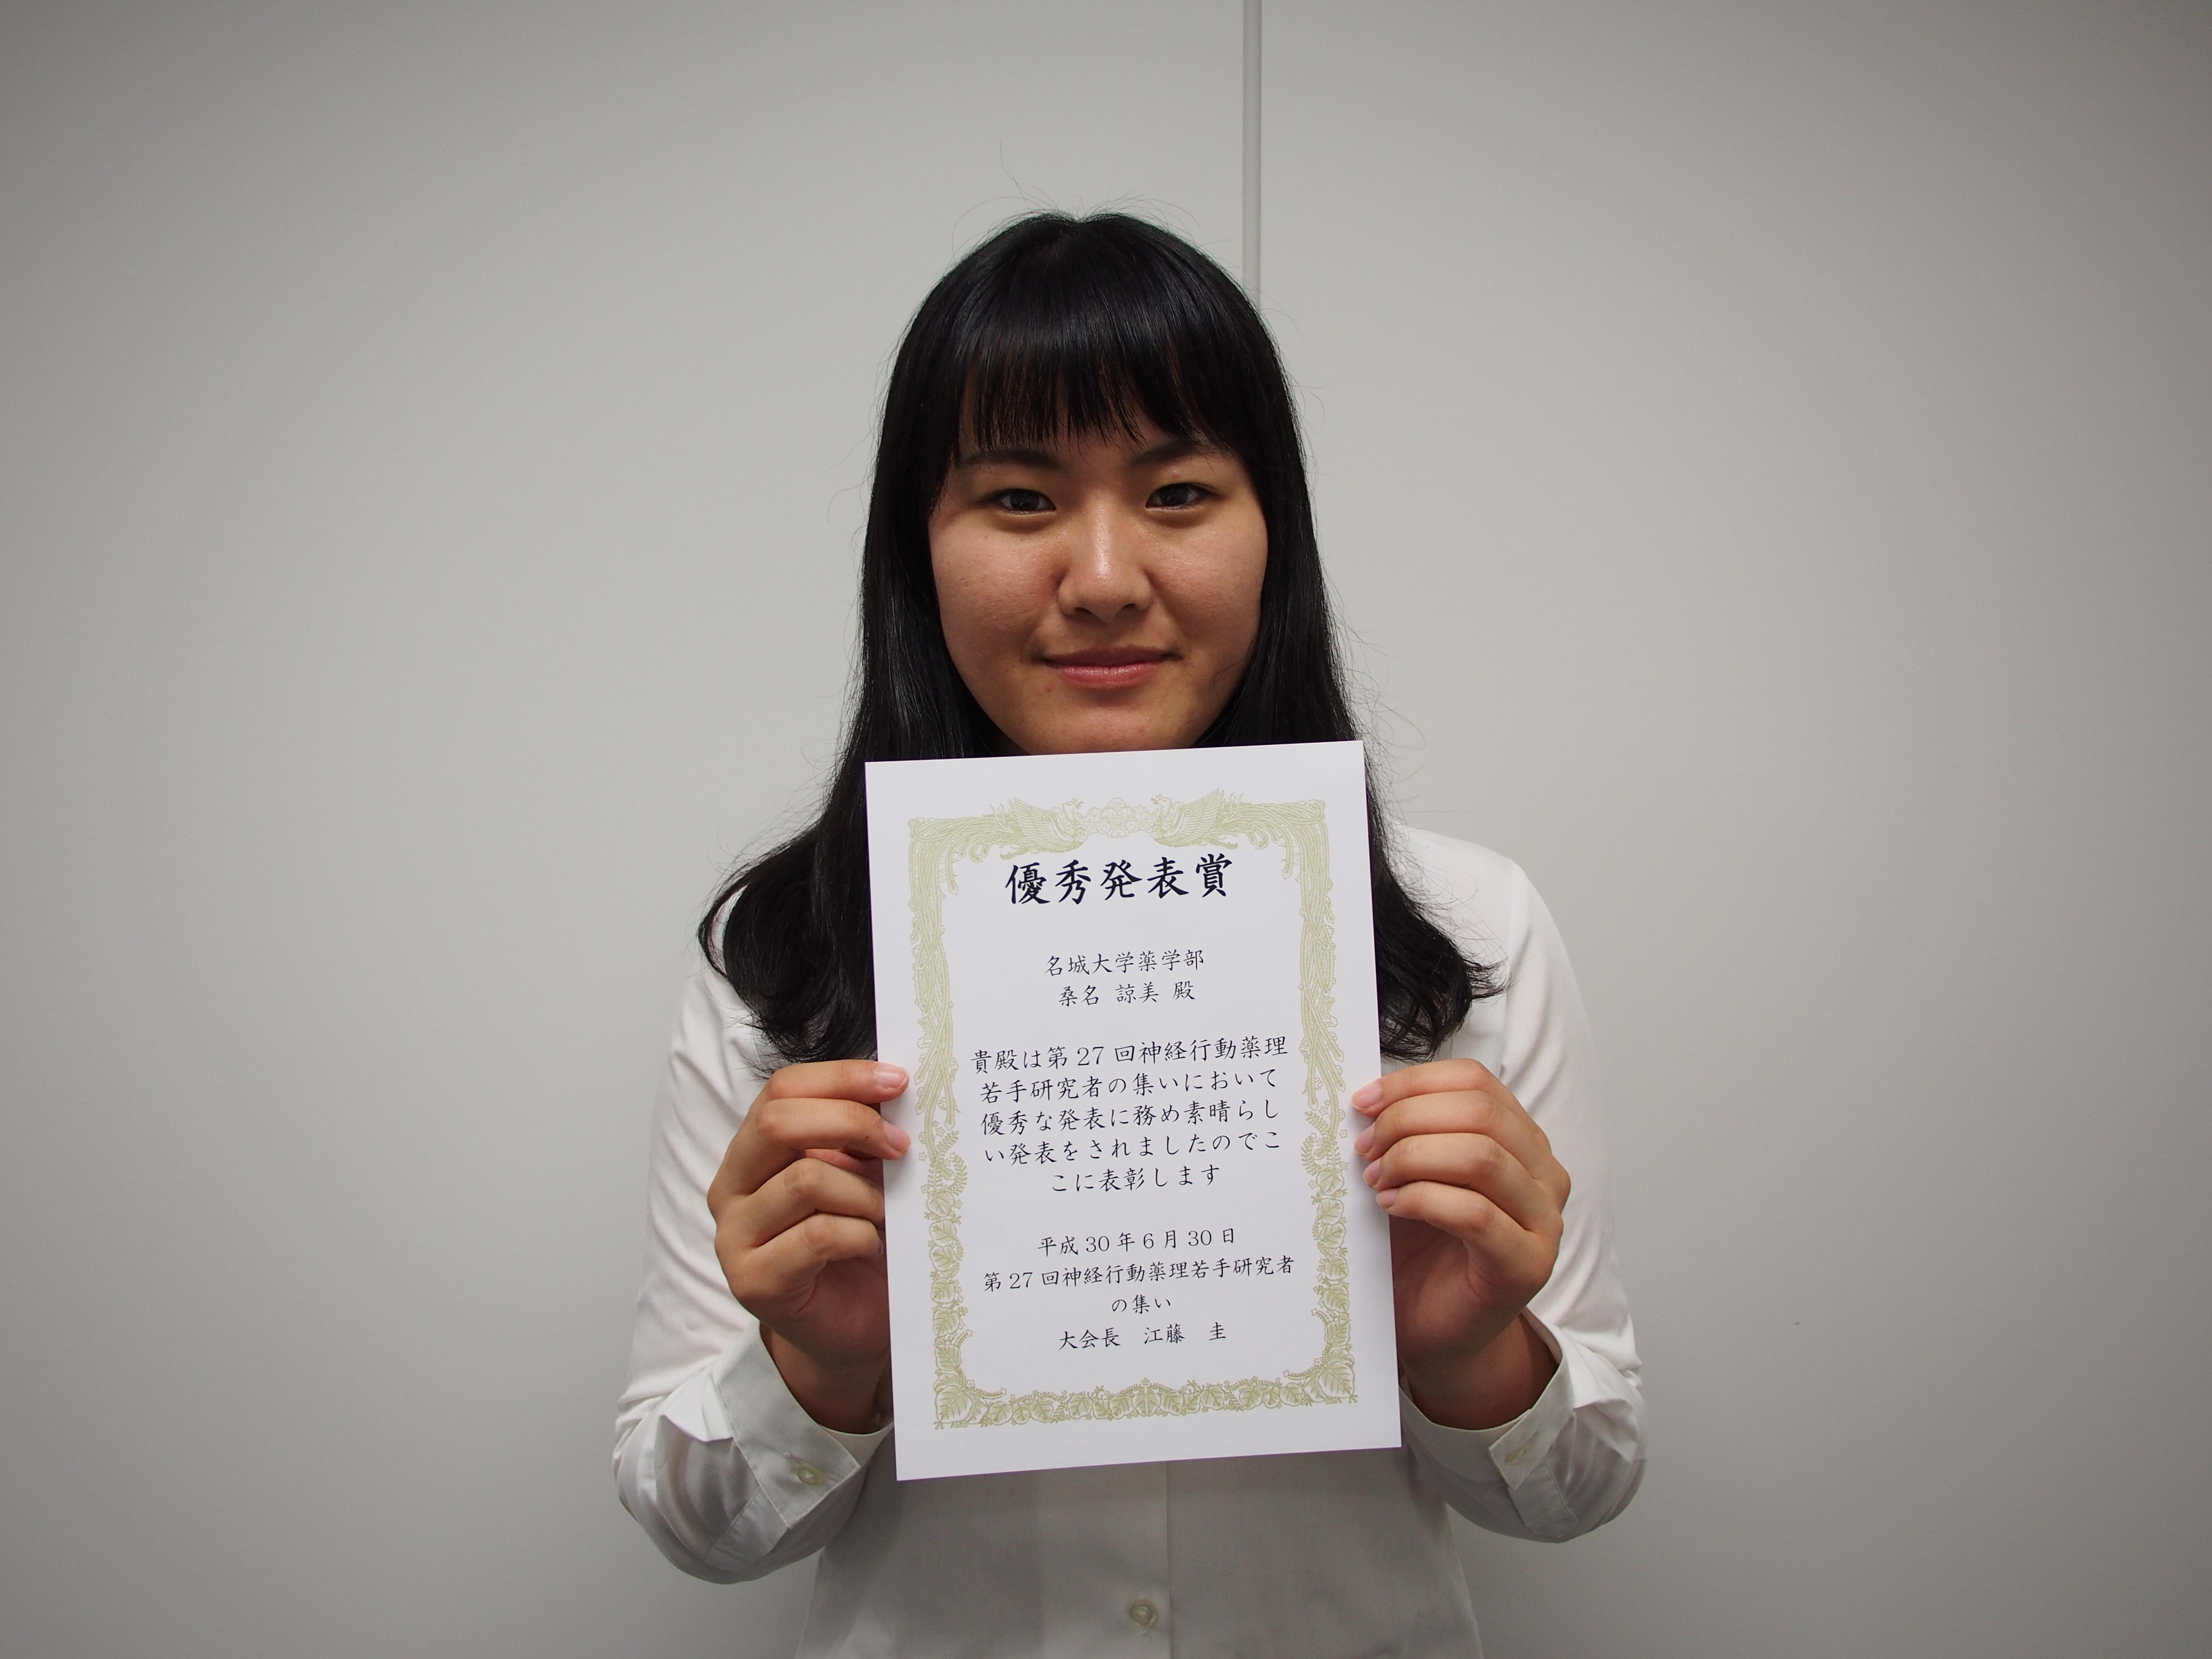 優秀発表賞
名城大学薬学部
桑名 諒美 殿
貴殿は第 27 回神経行動薬理
若手研究者の集いにおいて
優秀な発表に務め素晴らし
い発表をされましたのでこ
こに表彰します
平成 30 年 6 月 30 日
第 27 回神経行動薬理若手研究者
の集い
大会長 江藤 圭